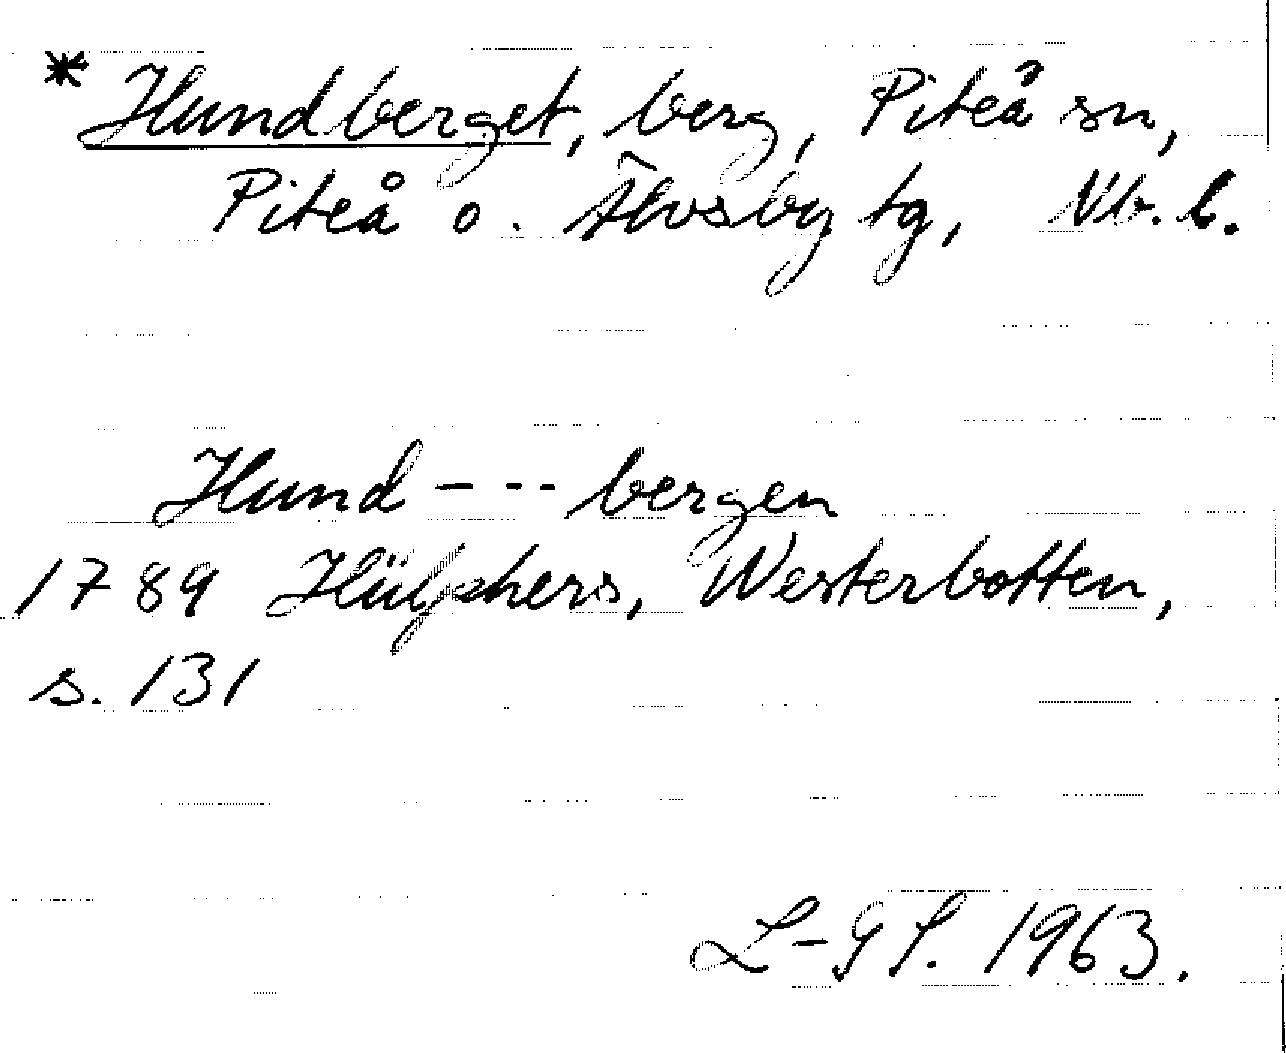 * Hundberget, berg, Piteå sn,
Piteå o. Älvsby tg, Nb. l.
Hund - - - bergen
1789 Hülphers, Westerbotten,
s. 131
L-G S. 1963.